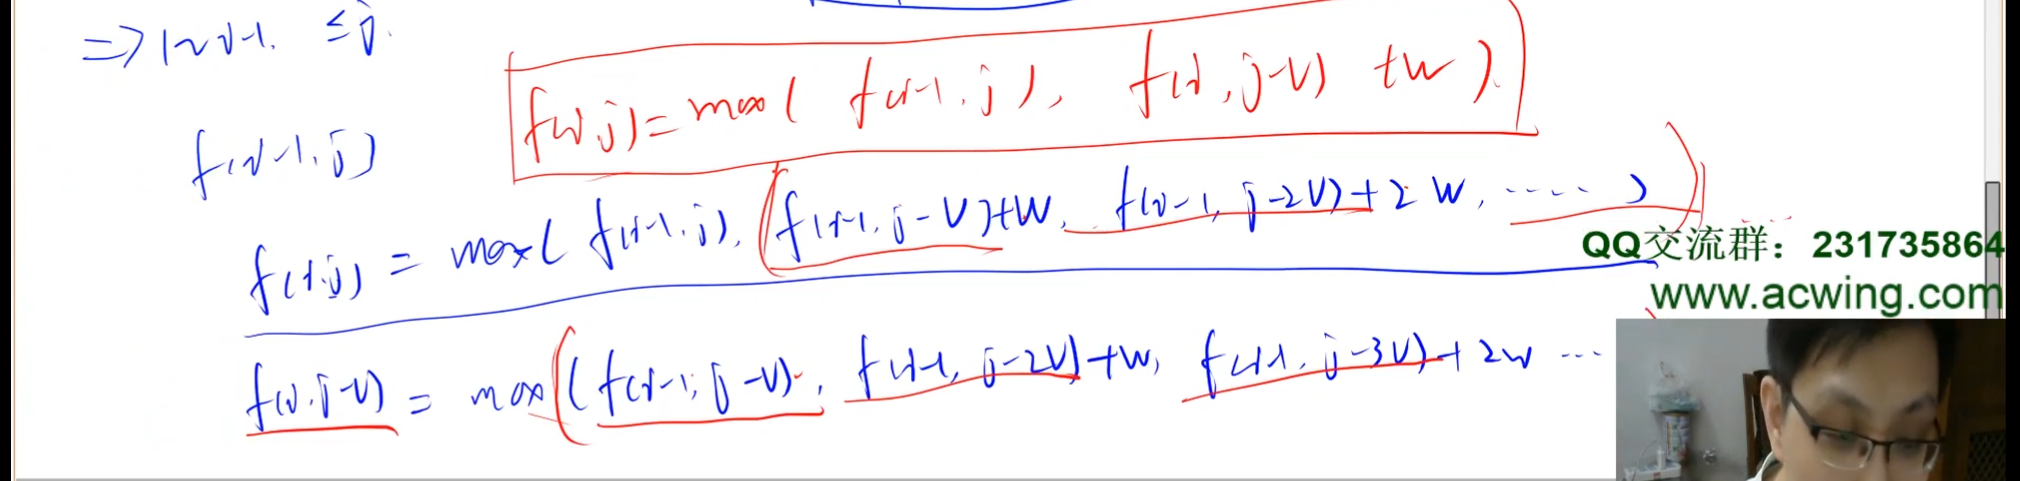 => 1~i-1. ≤j.
f(i,j) = max( f(i-1,j), f(i,j-v) +w ).
f(i-1,j)
f(i,j) = max( f(i-1,j), f(i-1,j-v)+w, f(i-1,j-2v)+2w, ..... )
QQ交流群：231735864
www.acwing.com
f(i,j-v) = max( f(i-1,j-v), f(i-1,j-2v)+w, f(i-1,j-3v)+2w ...